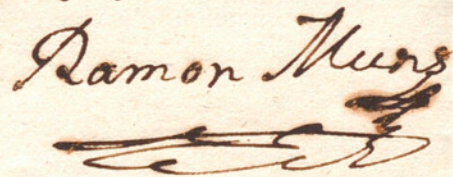 Ramon Muns